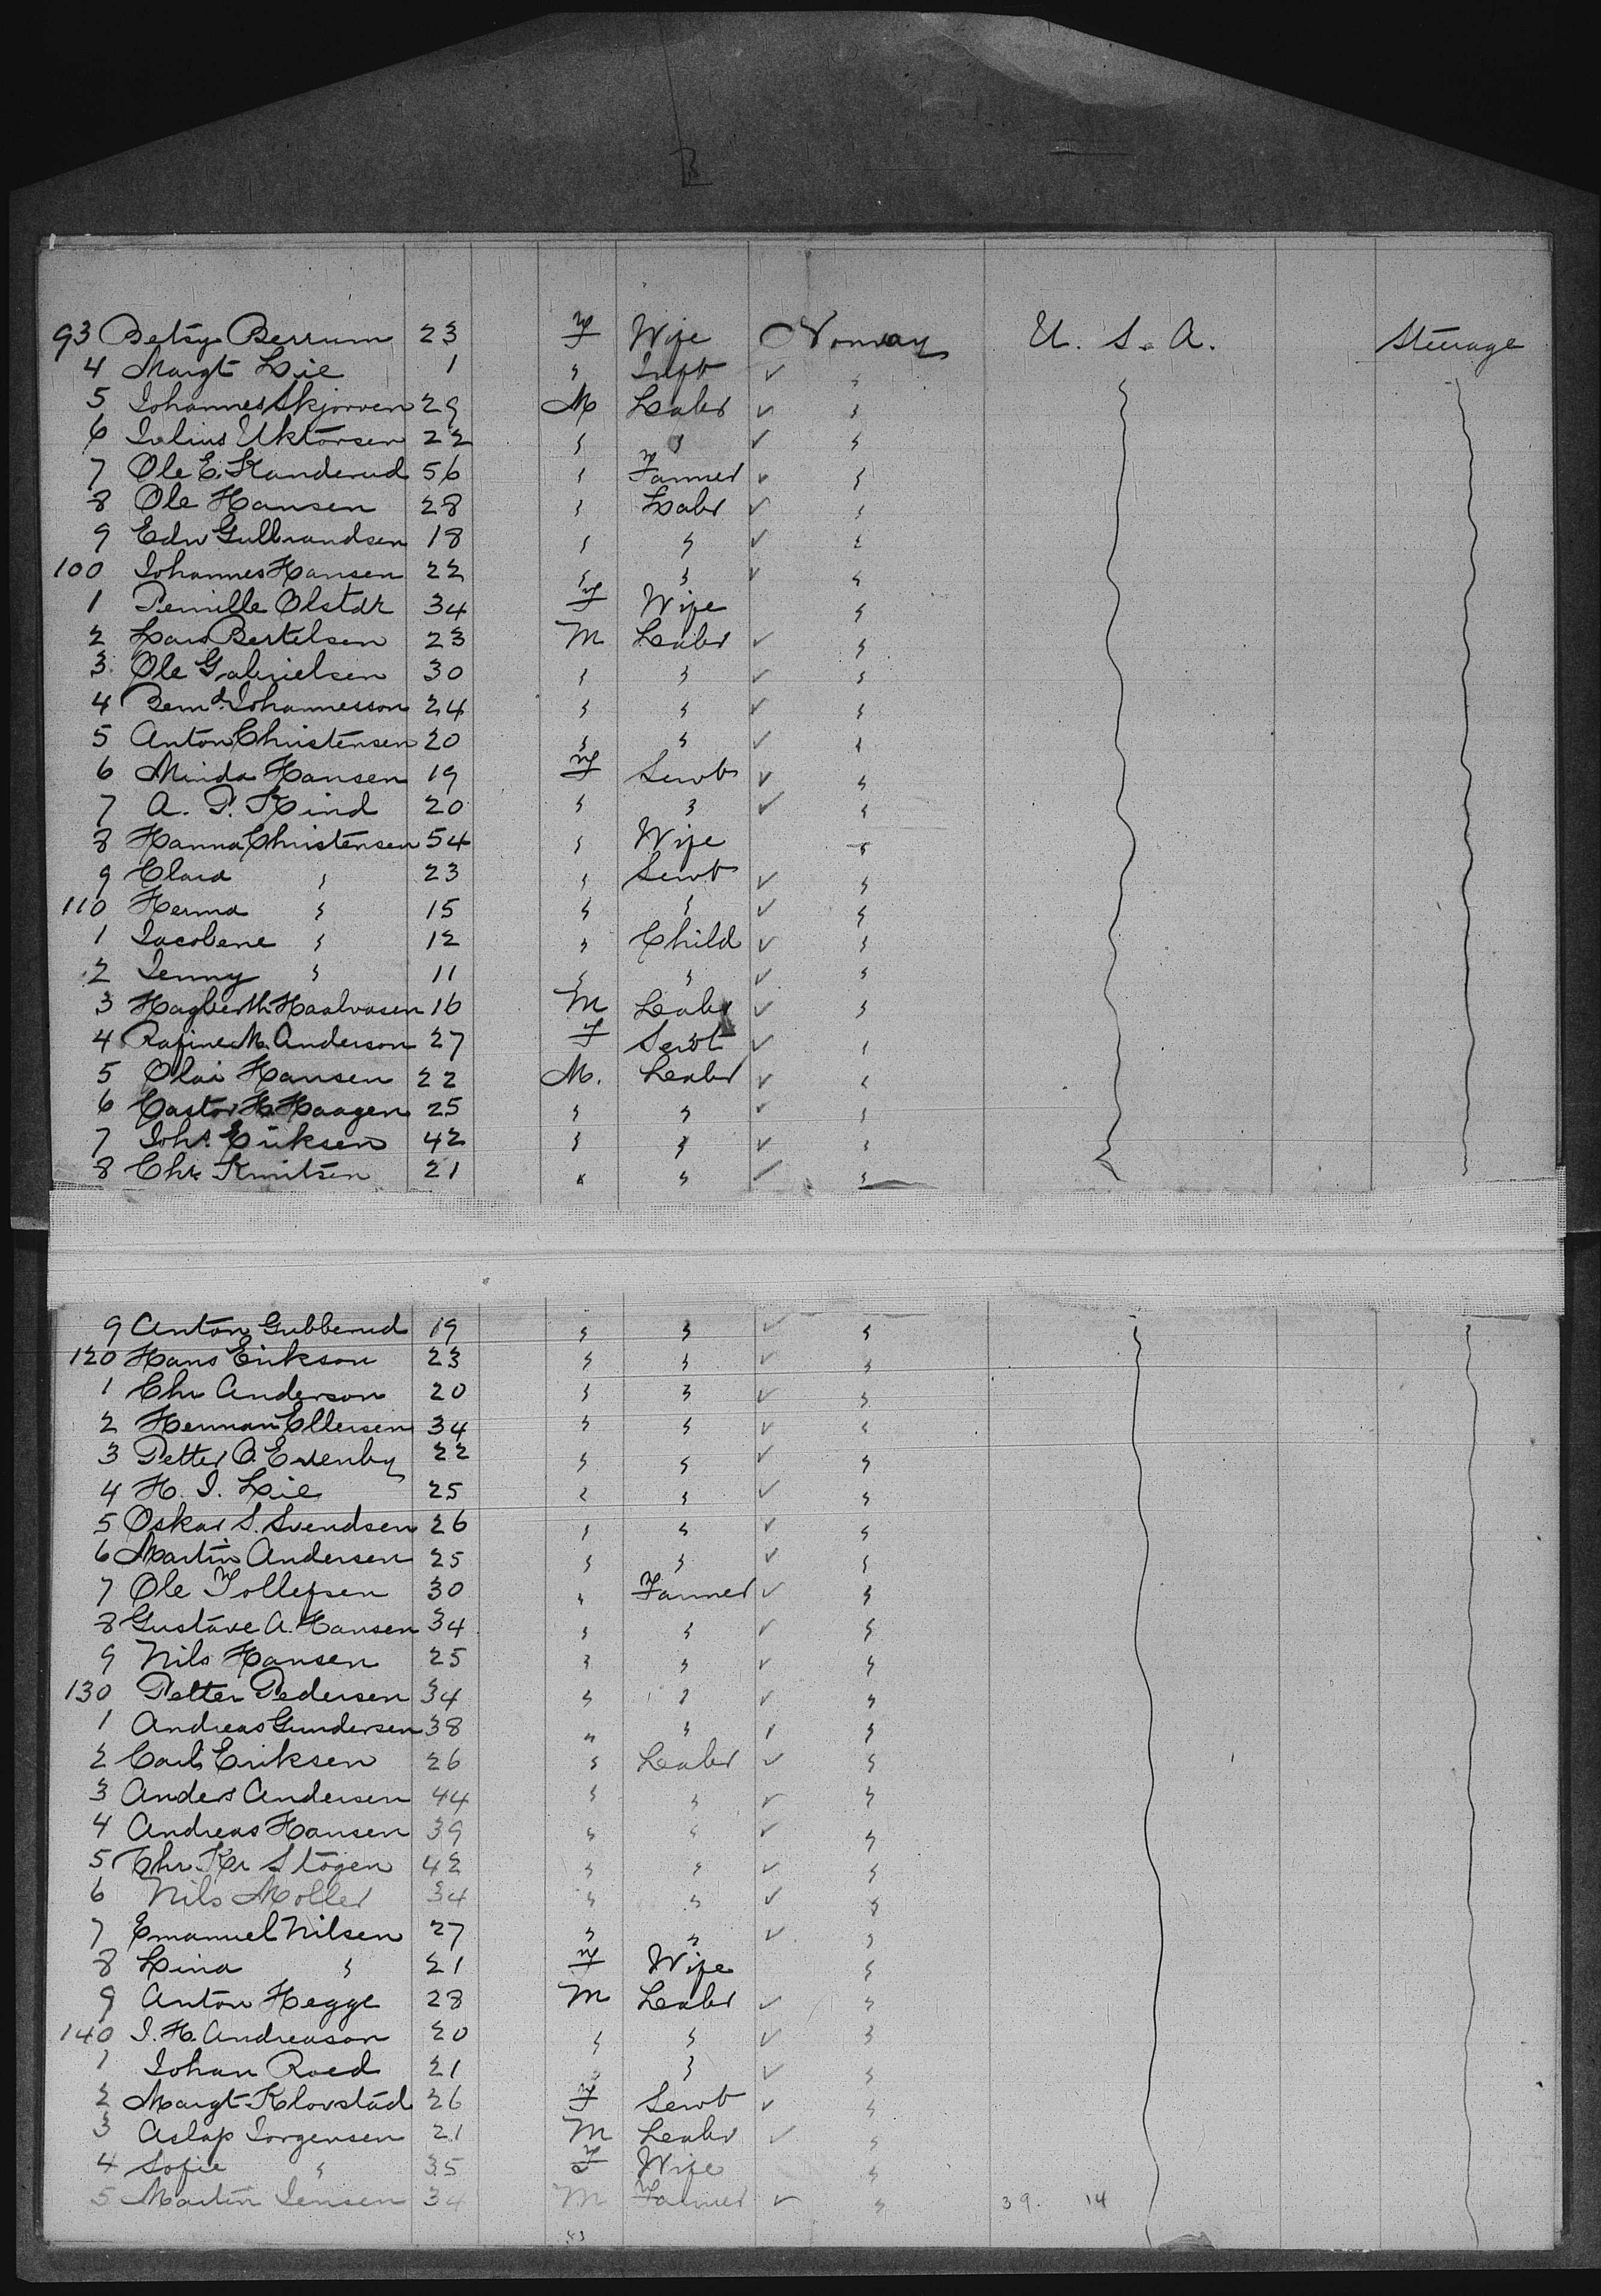 93 Betsy Berrum 23 F Wife Norway U. S. A. Steerage
4 Margt Lie 1 " Inft ✓ "
5 Johannes Skjorven 29 M Labr ✓ "
6 Julius Uktorsen 22 " " ✓ "
7 Ole E. Randerud 56 " Farmer ✓ "
8 Ole Hansen 28 " Labr ✓ "
9 Edw Gulbrandsen 18 " " ✓ "
100 Johannes Hansen 22 " " ✓ "
1 Pernille Olstdr 34 F Wife "
2 Lars Bertelsen 23 M Labr ✓ "
3 Ole Gabrielsen 30 " " ✓ "
4 Bernd Johannesson 24 " " ✓ "
5 Anton Christensen 20 " " ✓ "
6 Minda Hansen 19 F Servt ✓ "
7 A. P. Hind 20 " " ✓ "
8 Hanna Christensen 54 " Wife "
9 Clara " 23 " Servt ✓ "
110 Herma " 15 " " ✓ "
1 Jacobene " 12 " Child ✓ "
2 Jenny " 11 " " ✓ "
3 Hagberth Haalvasen 16 M Labr ✓ "
4 Rafine M. Anderson 27 F Servt ✓ "
5 Olai Hansen 22 M. Labr ✓ "
6 Castor H. Haagen 25 " " ✓ "
7 Johs. Eriksen 42 " " ✓ "
8 Chr Knutsen 21 " " ✓ "
9 Anton Gubberud 19 " " ✓ "
120 Hans Erikson 23 " " ✓ "
1 Chr Anderson 20 " " ✓ "
2 Herman Ellersen 34 " " ✓ "
3 Petter O. Evenby 22 " " ✓ "
4 H. J. Lie 25 " " ✓ "
5 Oskar S. Svendsen 26 " " ✓ "
6 Martin Andersen 25 " " ✓ "
7 Ole Tollefsen 30 " Farmer ✓ "
8 Gustave A. Hansen 34 " " ✓ "
9 Nils Hansen 25 " " ✓ "
130 Petter Pedersen 34 " " ✓ "
1 Andreas Gundersen 38 " " ✓ "
2 Carl Eriksen 26 " Labr ✓ "
3 Anders Andersen 44 " " ✓ "
4 Andreas Hansen 39 " " ✓ "
5 Chr. Kr Stogen 42 " " ✓ "
6 Nils Moller 34 " " ✓ "
7 Emanuel Nilsen 27 " " ✓ "
8 Lina " 21 F Wife "
9 Anton Hegge 28 M Labr ✓ "
140 J. H. Andreason 20 " " ✓ "
1 Johan Roed 21 " " ✓ "
2 Margt Klovstad 26 F Servt ✓ "
3 Aslap Jorgensen 21 M Labr ✓ "
4 Sofie " 35 F Wife "
5 Martin Jensen 34 M Farmer ✓ " 39. 14